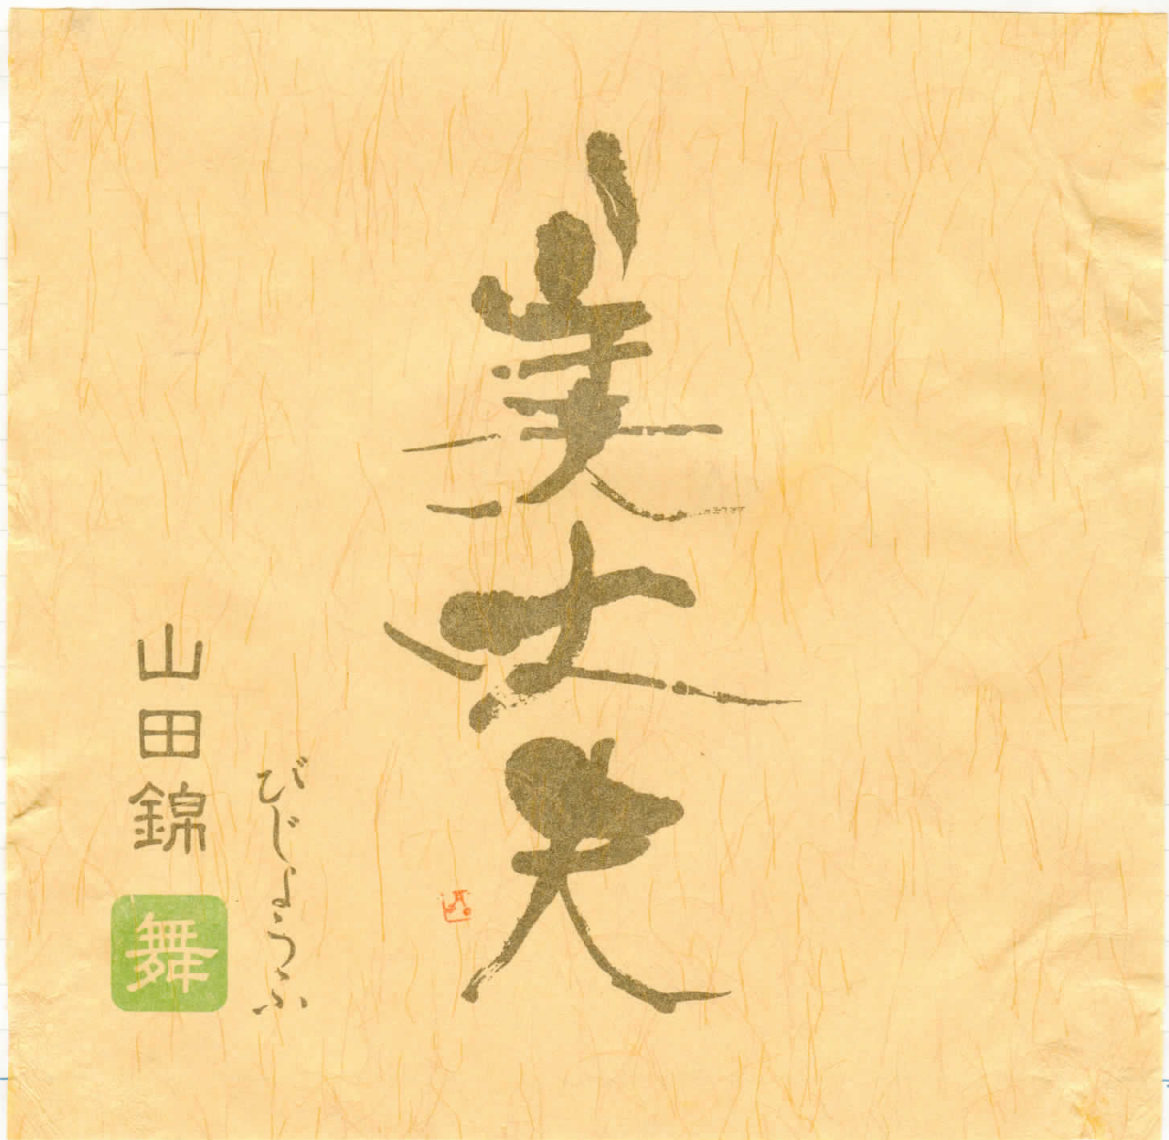 美丈夫
びじょうふ
山田錦
舞